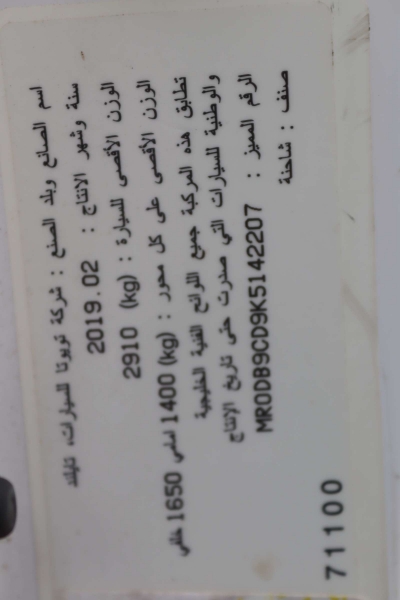 اسم الصانع وبلد الصنع : شركة تويوتا للسيارات، تايلند
سنة وشهر الانتاج : 2019.02
الوزن الأقصى للسيارة : (kg) 2910
الوزن الأقصى على كل محور : (kg) 1400 امامي 1650 خلفي
تطابق هذه المركبة جميع اللوائح الفنية الخليجية
والوطنية للسيارات التي صدرت حتى تاريخ الإنتاج
الرقم المميز : MR0DB9CD9K5142207
صنف : شاحنة
71100